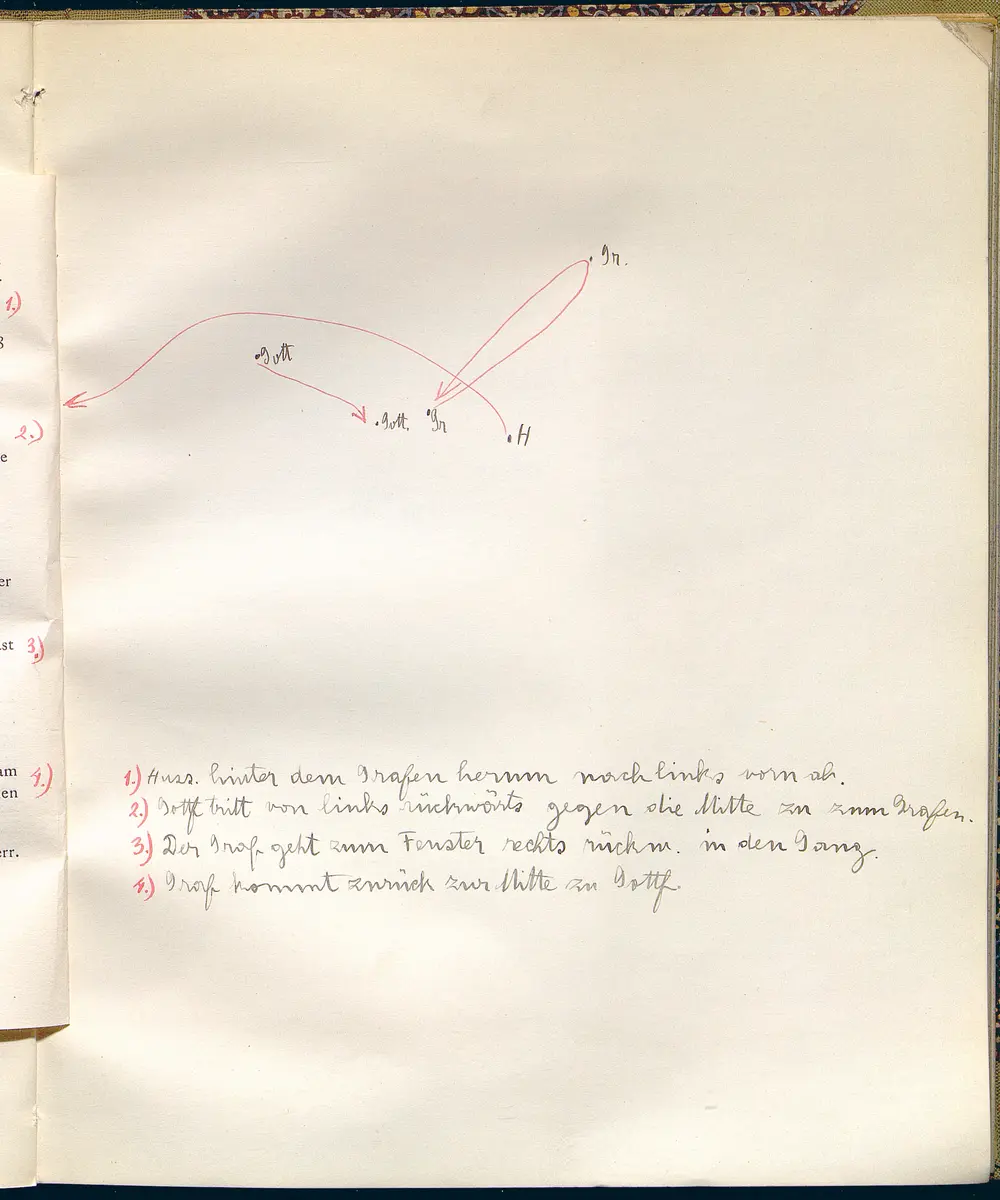 1.)
2.)
er
st 3.)
am 4.)
en
err.
Gr.
.Gott
.Gott. .Gr
.H
1.) Huss. hinter dem Grafen herum nach links vorn ab.
2.) Gottf tritt von links rückwärts gegen die Mitte zu zum Grafen.
3.) Der Graf geht zum Fenster rechts rückw. in den Gang.
4.) Graf kommt zurück zur Mitte zu Gottf.